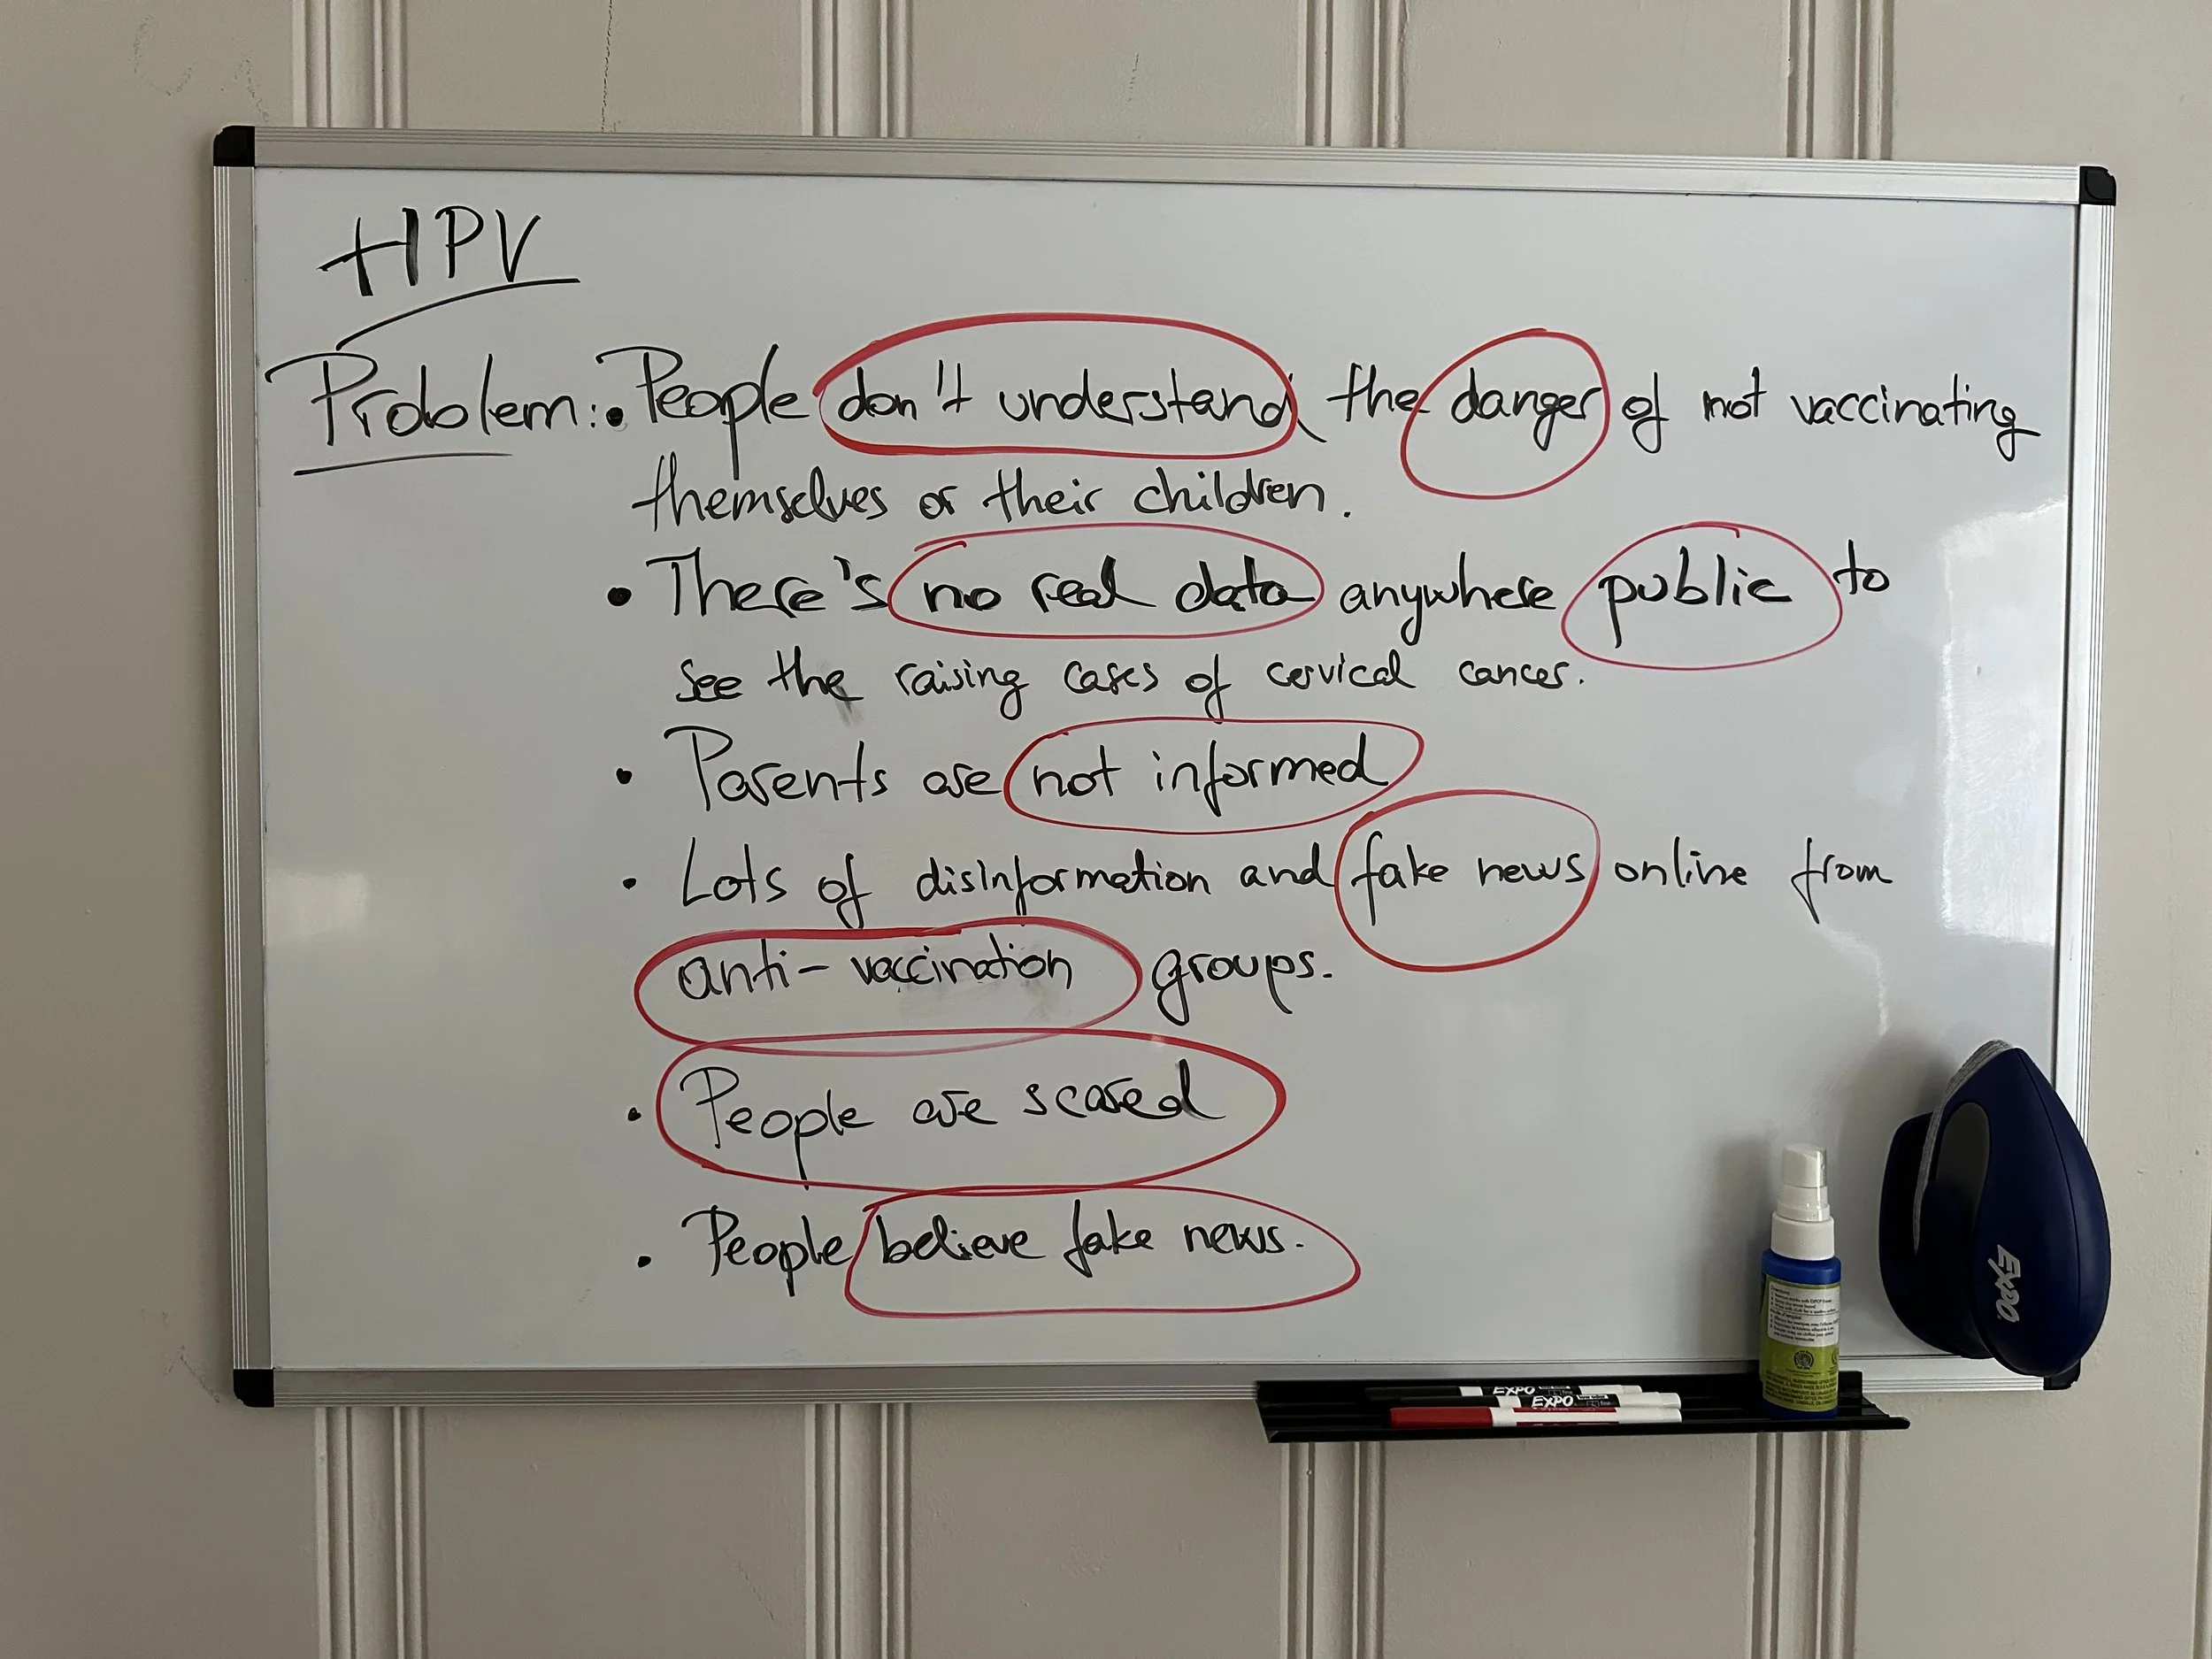 HPV
Problem: • People don't understand the danger of not vaccinating
themselves or their children.
• There's no real data anywhere public to
see the raising cases of cervical cancer.
• Parents are not informed
• Lots of disinformation and fake news online from
anti-vaccination groups.
• People are scared
• People believe fake news.
EXPO
EXPO
EXPO